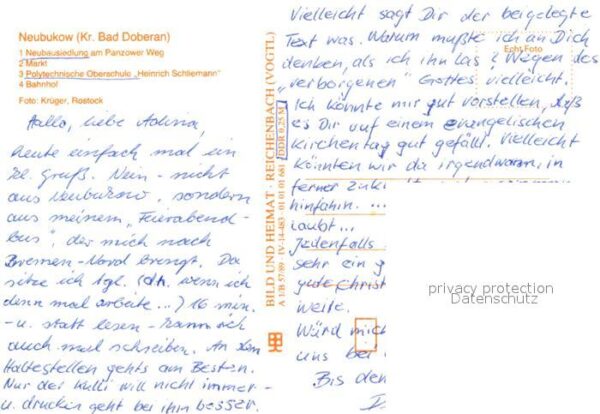 Neubukow (Kr. Bad Doberan)
1 Neubausiedlung am Panzower Weg
2 Markt
3 Polytechnische Oberschule „Heinrich Schliemann"
4 Bahnhof
Foto: Krüger, Rostock
Hallo, liebe
heute einfach mal ein
kl. Gruß. Nein - nicht
aus Neubukow, sondern
aus meinem „Feierabend-
bus", der mich nach
Bremen-Nord bringt. Da
sitze ich tgl. (dh. wenn ich
denn mal arbeite...) 16 min.
- u. statt lesen - kann ich
auch mal schreiben. An den
Haltestellen gehts am Besten.
Nur der Kulli will nicht immer -
u. drucken geht bei ihm besser.
BILD UND HEIMAT · REICHENBACH (VOGTL)
A 1/B 57/89 · IV-14-483 · 01 01 01 661 DDR 0,25 M
Vielleicht sagt Dir der beigelegte
Text was. Warum mußte ich an Dich
denken, als ich ihn las? Wegen des
„verborgenen" Gottes vielleicht.
Echt Foto
Ich könnte mir gut vorstellen, daß
es Dir auf einem evangelischen
Kirchentag gut gefällt. Vielleicht
könnten wir da irgendwann, in
ferner
hinfahrn...
laubt...
Jedenfalls
sehr ein
gute
weite.
Würd mich
uns bei
Bis den
privacy protection
Datenschutz